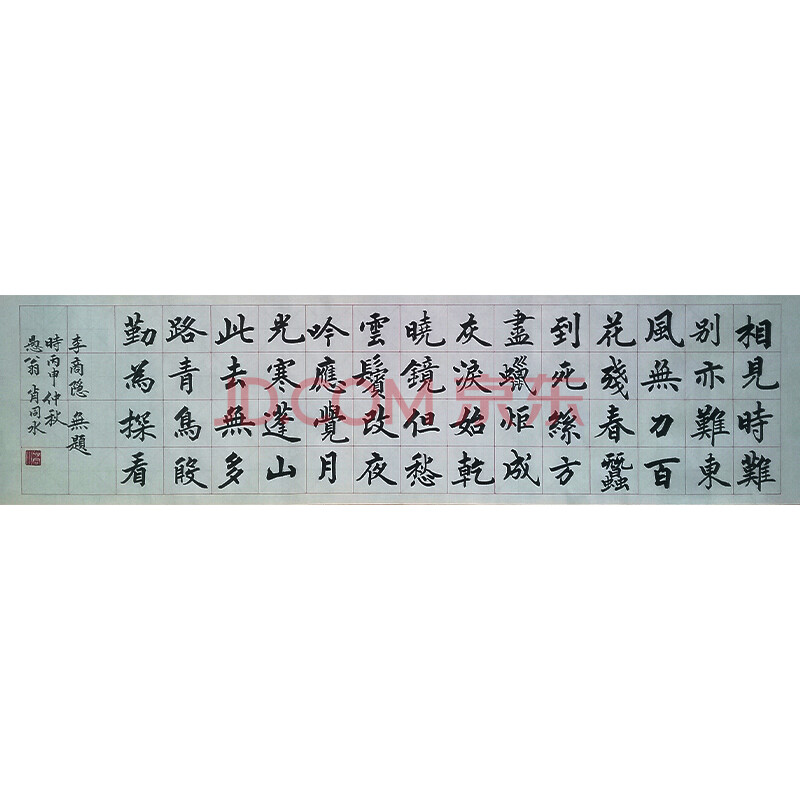 相見時難
別亦難東
風無力百
花殘春蠶
到死絲方
盡蠟炬成
灰淚始乾
曉鏡但愁
雲鬢改夜
吟應覺月
光寒蓬山
此去無多
路青鳥殷
勤為探看
李商隐 無題
時丙申仲秋
愚翁 肖同水
JD.COM 京东